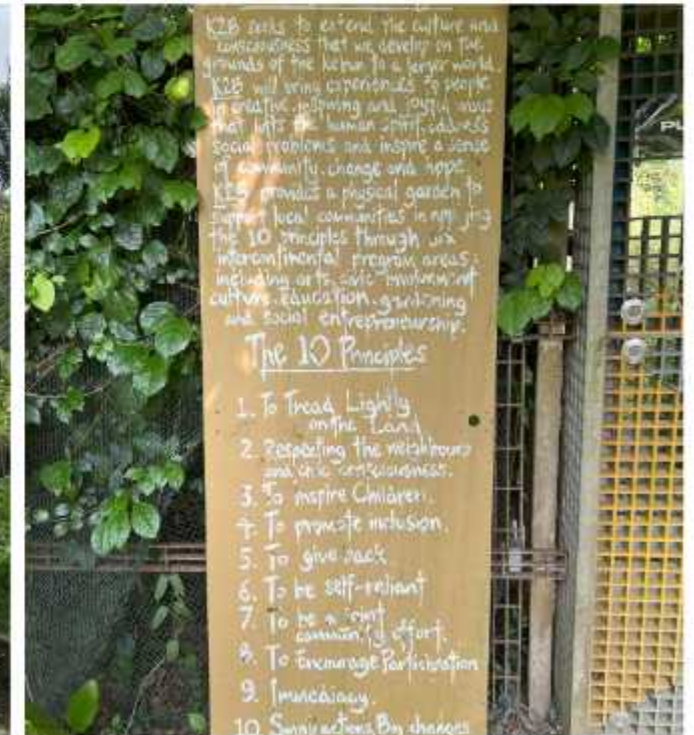 K2B seeks to extend the culture and
consciousness that we develop on the
grounds of the kebun to a larger world.
K2B will bring experiences to people
in creative, inspiring and joyful ways
that lifts the human spirit, address
social problems and inspire a sense
of community, change and hope
provides a physical garden to
support local communities in applying
the 10 principles through six
intercontinental program areas:
including arts, civic involvement
culture, education, gardening
and social entrepreneurship.
The 10 Principles
1. To Tread Lightly
on the Land
2. Respecting the neighbours
and civic consciousness.
3. To inspire Children.
4. To promote inclusion.
5. To give back
6. To be self-reliant
7. To be a joint
community effort.
8. To Encourage Participation
9. Immediacy.
10 By changes
PL